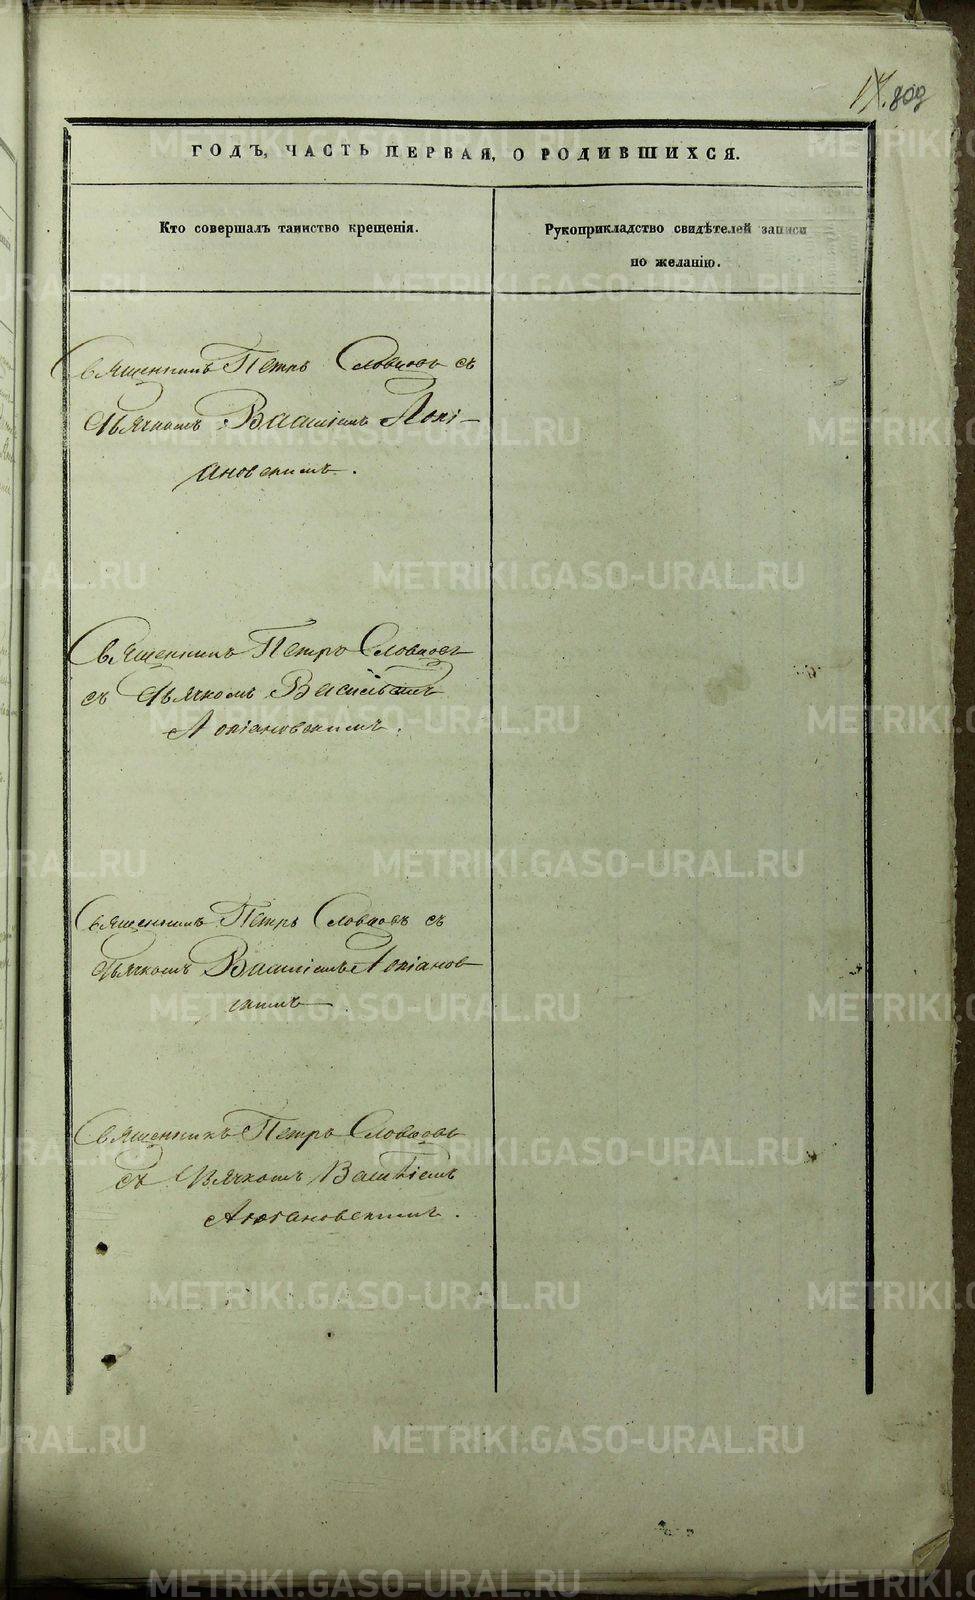 809
ГОДЪ, ЧАСТЬ ПЕРВАЯ, О РОДИВШИХСЯ.
Кто совершалъ таинство крещенія.
Рукоприкладство свидѣтелей записи
по желанію.
Священникъ Петръ Словцовъ съ
Дьячкомъ Василіемъ Топі-
ановскимъ.
Священникъ Петръ Словцовъ
съ Дьячкомъ Васильемъ
Топіановскимъ.
Священникъ Петръ Словцовъ съ
Дьячкомъ Василіемъ Топіанов
скимъ
Священникъ Петръ Словцовъ
съ Дьячкомъ Василіемъ
METRIKI.GASO-URAL.RU